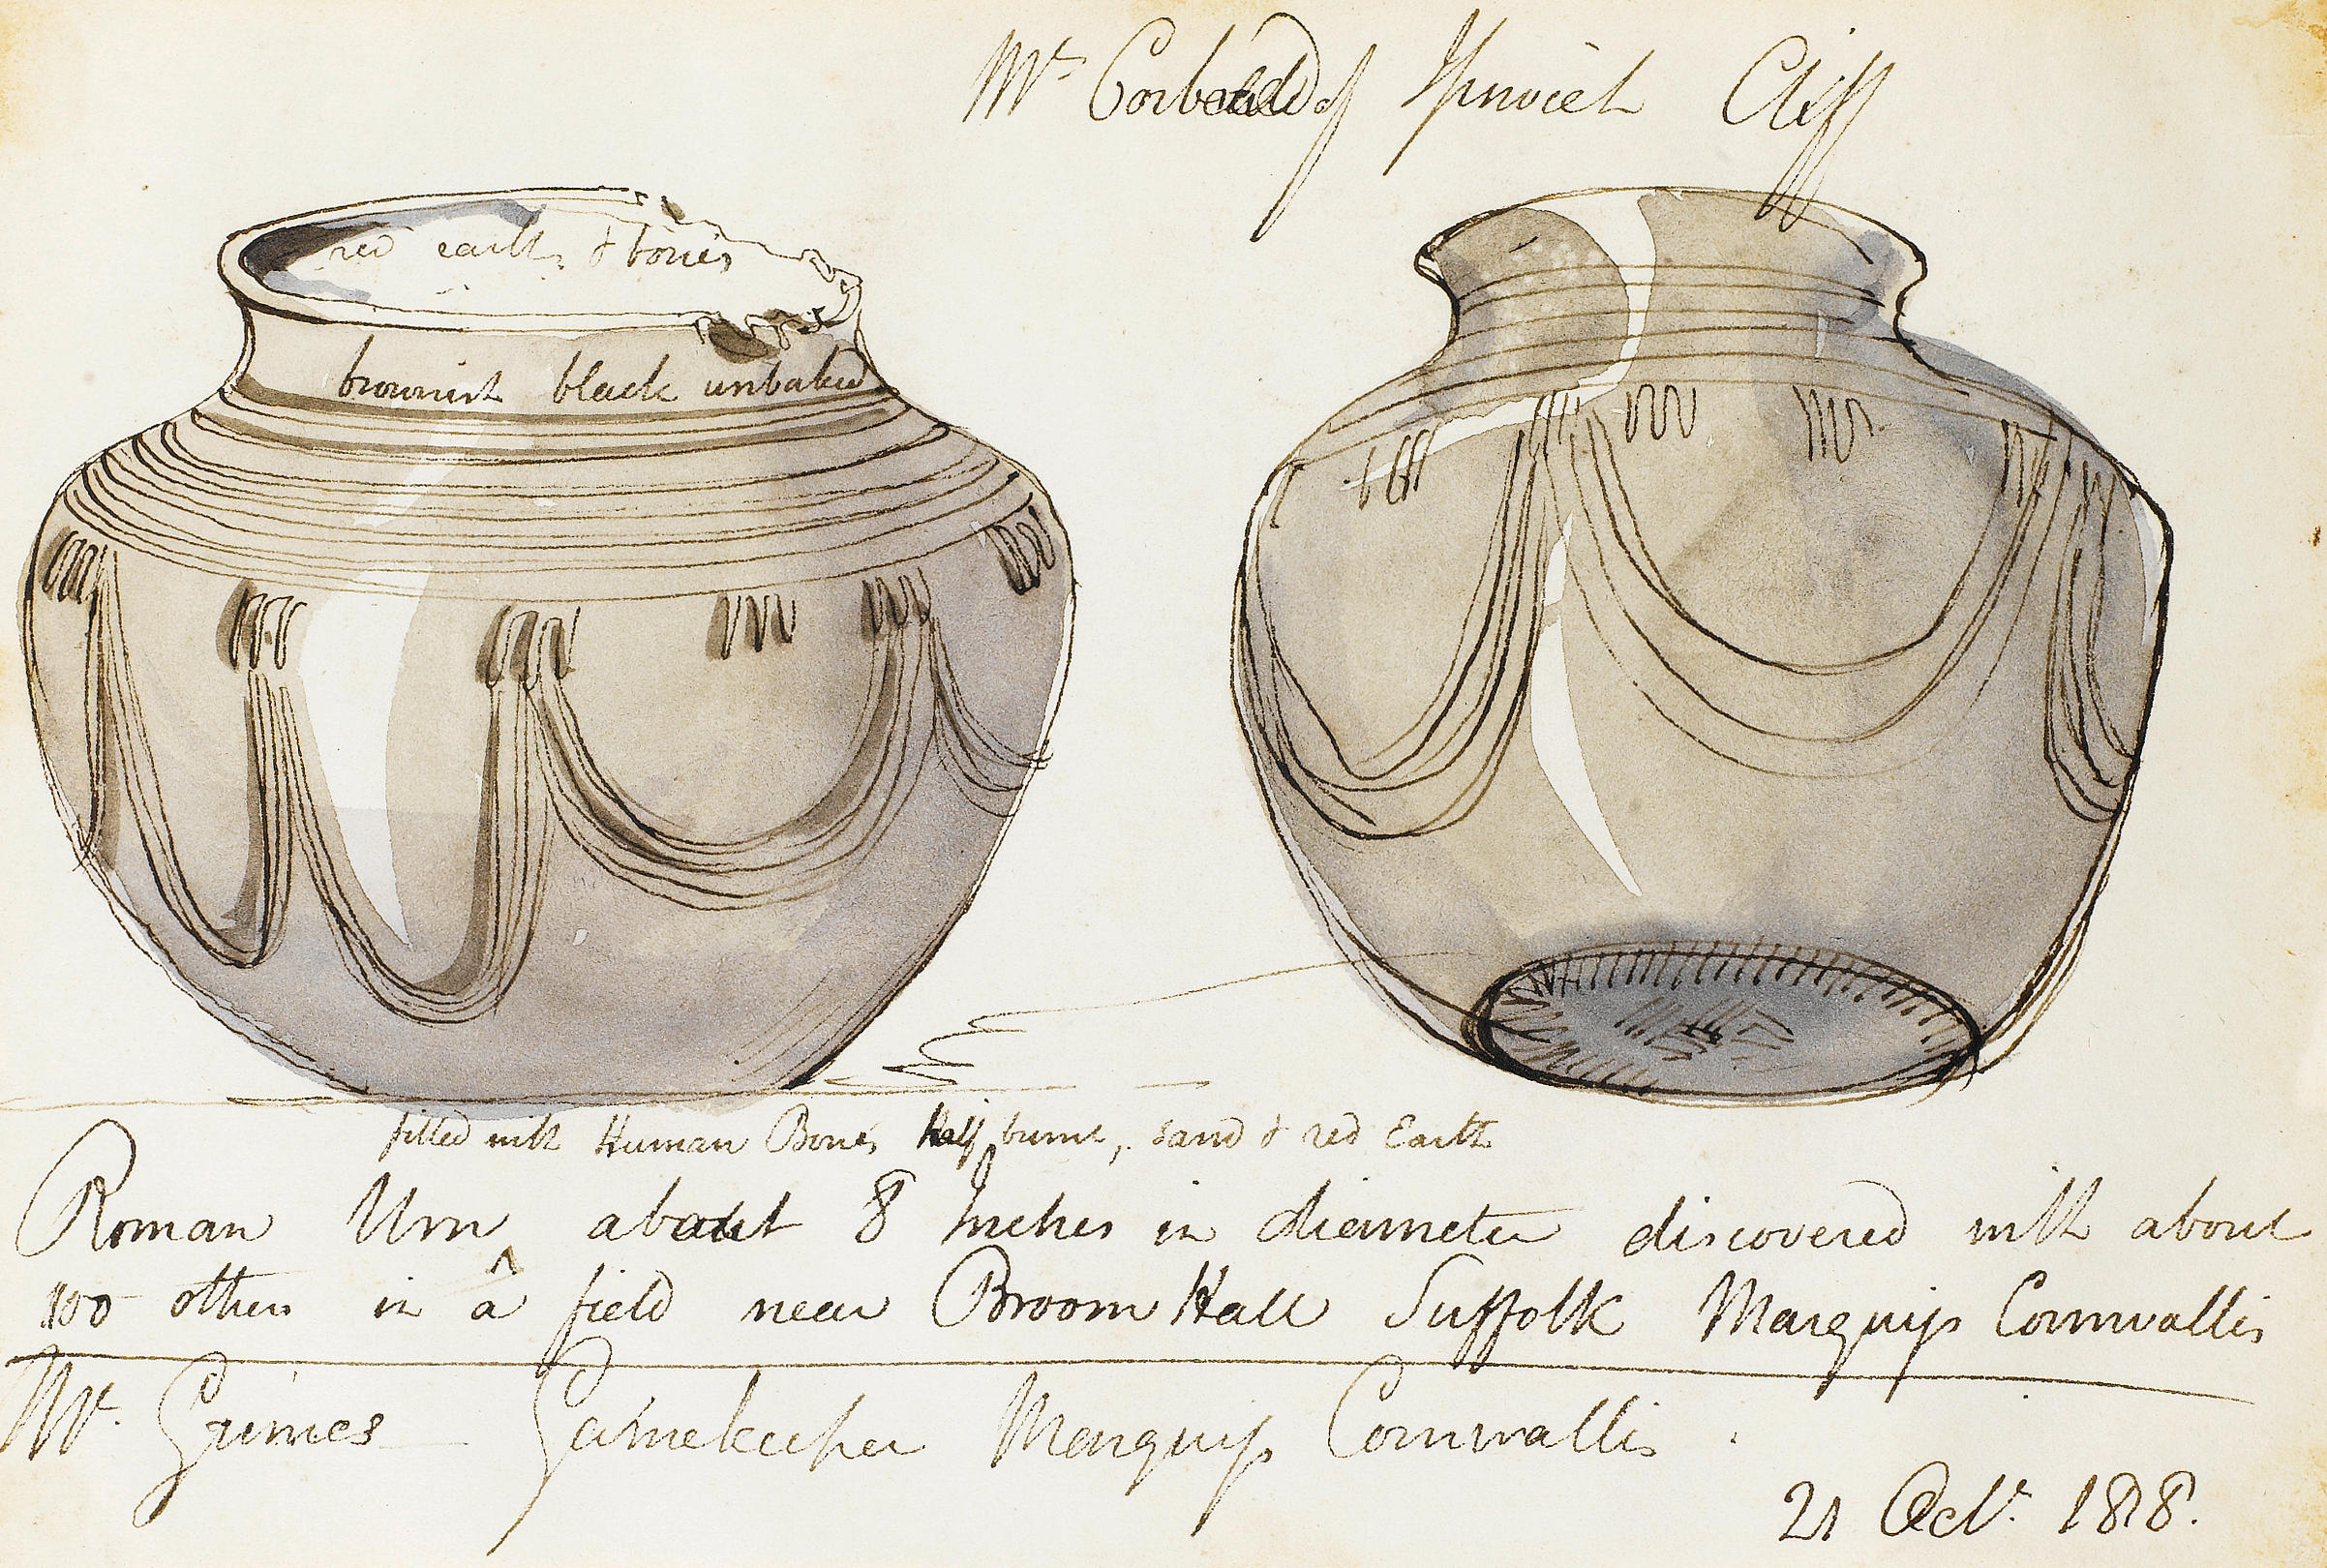 Mr Corbould of Ipswich Cliff
red earth & bones
brownish black unbaked
filled with Human Bones half burnt, sand & red Earth
Roman Urn about 8 Inches in diameter discovered with about
100 others in a field near Broom Hall Suffolk Marquis Cornwallis
Mr. Grimes Gamekeeper Marquis Cornwallis
21 Octr. 1818.